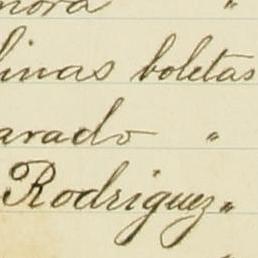 mora "
linas boletas
arado "
Rodriguez "